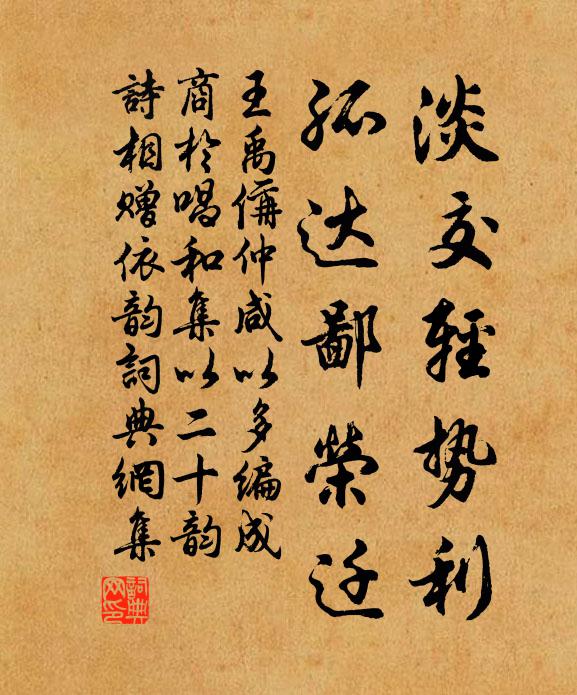 淡交輕势利
孤达鄙榮迁
王禹偁仲咸以多编成
商於唱和集以二十韵
詩相赠依韵詞典網集
詞典网印